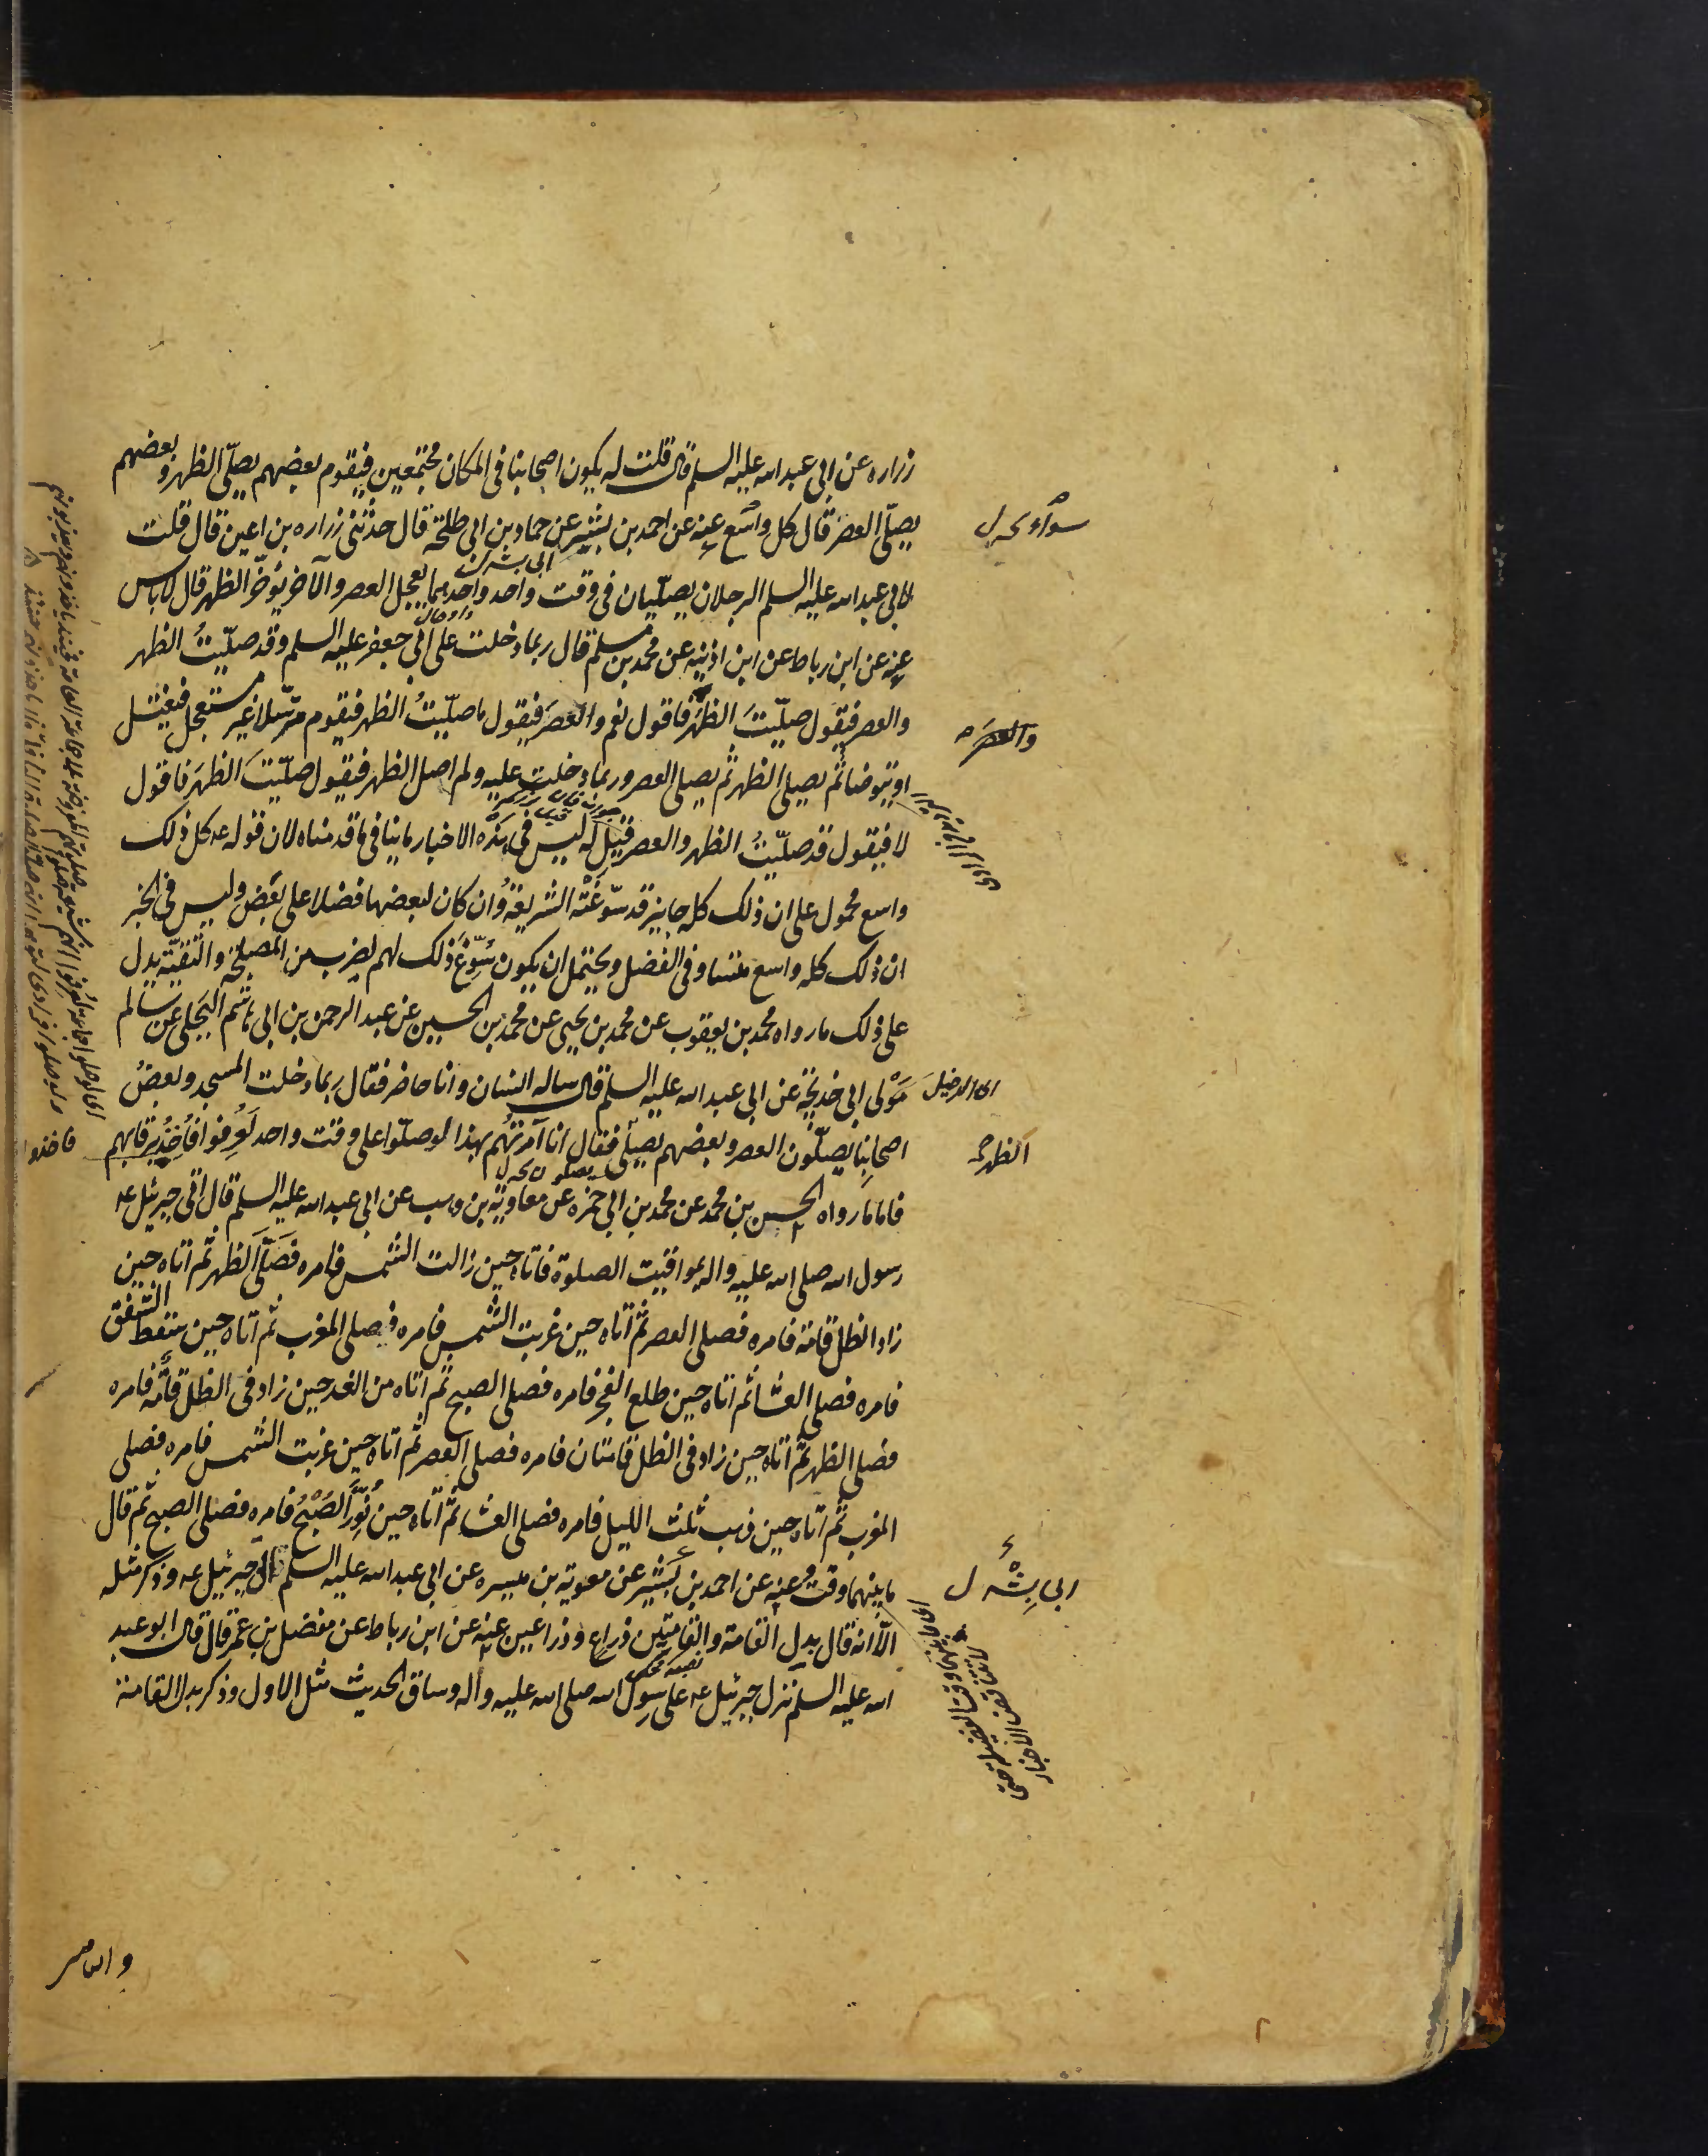 زراره عن ابى عبد الله عليه السلم قال قلت له يكون اصحابنا فى المكان مجتمعين فيقوم بعضهم يصلّى الظهر و بعضهم
يصلّى العصر قال كل واسع عنه عن احمد بن بشير عن حماد بن ابى طلحة قال حدثنى زراره بن اعين قال قلت
لابى عبد الله عليه السلم الرجلان يصلّيان فى وقت واحد واحدهما يعجل العصر والآخر يؤخّر الظهر قال لا باس
عنه عن ابن رباط عن ابن اذينه عن محمد بن مسلم قال ربما دخلت على ابى جعفر عليه السلم وقد صلّيتُ الظهر
والعصر فيقول صلّيتَ الظهر فاقول نعم والعصرَ فيقول ما صلّيتُ الظهر فيقوم مترسّلا غير مستعجل فيغتسل
او يتوضا ثم يصلى الظهر ثم يصلى العصر وربما دخلت عليه ولم اصل الظهر فيقول صلّيتَ الظهرَ فاقول
لا فيقول قد صلّيتُ الظهر والعصر قيل له ليس فى هذه الاخبار ما ينافى ما قدمناه لان قوله ع كل ذلك
واسع محمول على ان ذلك كله جايز قد سوّغته الشريعة وان كان لبعضها فضلا على بعض وليس فى الخبر
ان ذلك كله واسع متساو فى الفضل ويحتمل ان يكون سُوّغَ ذلك لهم لضرب من المصلحة والتقيّة يدل
على ذلك ما رواه محمد بن يعقوب عن محمد بن يحيى عن محمد بن الحسين عن عبد الرحمن بن ابى هاشم البجلى عن سالم
مَوْلى ابى خديجة عن ابى عبد الله عليه السلم قال ساله انسان وانا حاضر فقال ربما دخلت المسجد وبعضُ
اصحابِنا يصلّون العصر وبعضهم يصلّى فقال انا آمرتهم بهذا لو صلّوا على وقت واحد لعُرِفوا فاُخِذَ برقابهم
فاما ما رواه الحسن بن محمد عن محمد بن ابى حمزه عن معاوية بن وهب عن ابى عبد الله عليه السلم قال اتى جبرئيل ع
رسول الله صلى الله عليه واله بمواقيت الصلوة فاتاه حين زالت الشمس فامره فصَلّى الظهر ثم اتاه حين
زاد الظل قامة فامره فصلى العصر ثم اتاه حين غربت الشمس فامره فصلى المغرب ثم اتاه حين سقط الشفق
فامره فصلى العشا ثم اتاه حين طلع الفجر فامره فصلى الصبح ثم اتاه من الغد حين زاد فى الظل قامة فامره
فصلى الظهر ثم اتاه حين زاد فى الظل قامتان فامره فصلى العصر ثم اتاه حين غربت الشمس فامره فصلى
المغرب ثم اتاه حين ذهب ثلث الليل فامره فصلى العشا ثم اتاه حين نُوّرَ الصُبْحُ فامره فصلى الصبح ثم قال
ما بينهما وقت عنه عن احمد بن بشير عن معوية بن ميسره عن ابى عبد الله عليه السلم اتى جبرئيل ع وذكر مثله
الّا انه قال بدل القامة والقامتين ذراع وذراعين عنه عن ابن رباط عن مفضل بن عمر قال قال ابو عبد
الله عليه السلم نزل جبرئيل ع على رسول الله صلى الله عليه وآله وساق الحديث مثل الاول وذكر بدل القامة
سوآء
والعصر
الظهر
ابى بِشْر ل
فاخذوا